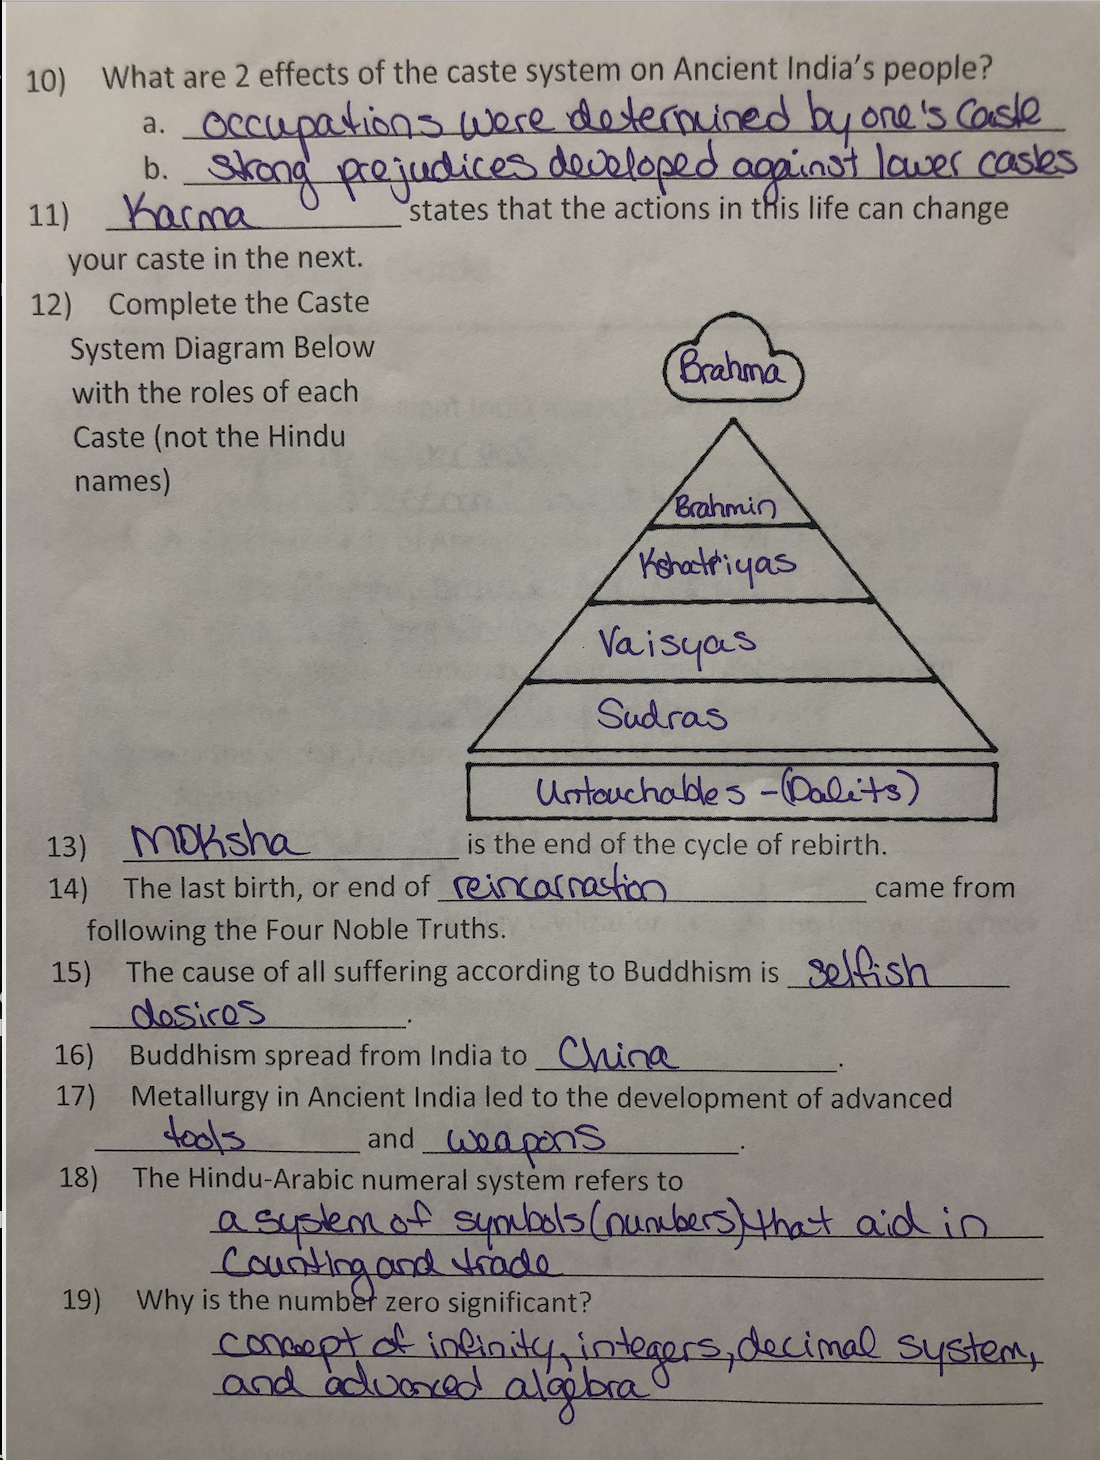 10) What are 2 effects of the caste system on Ancient India's people?
a. occupations were determined by one's caste
b. strong prejudices developed against lower castes
11) Karma states that the actions in this life can change
your caste in the next.
12) Complete the Caste
System Diagram Below
with the roles of each
Caste (not the Hindu
names)
Brahma
Brahmin
Kshatriyas
Vaisyas
Sudras
Untouchables - (Dalits)
13) Moksha is the end of the cycle of rebirth.
14) The last birth, or end of reincarnation came from
following the Four Noble Truths.
15) The cause of all suffering according to Buddhism is selfish
desires.
16) Buddhism spread from India to China.
17) Metallurgy in Ancient India led to the development of advanced
tools and weapons.
18) The Hindu-Arabic numeral system refers to
a system of symbols (numbers) that aid in
counting and trade
19) Why is the number zero significant?
concept of infinity, integers, decimal system,
and advanced algebra